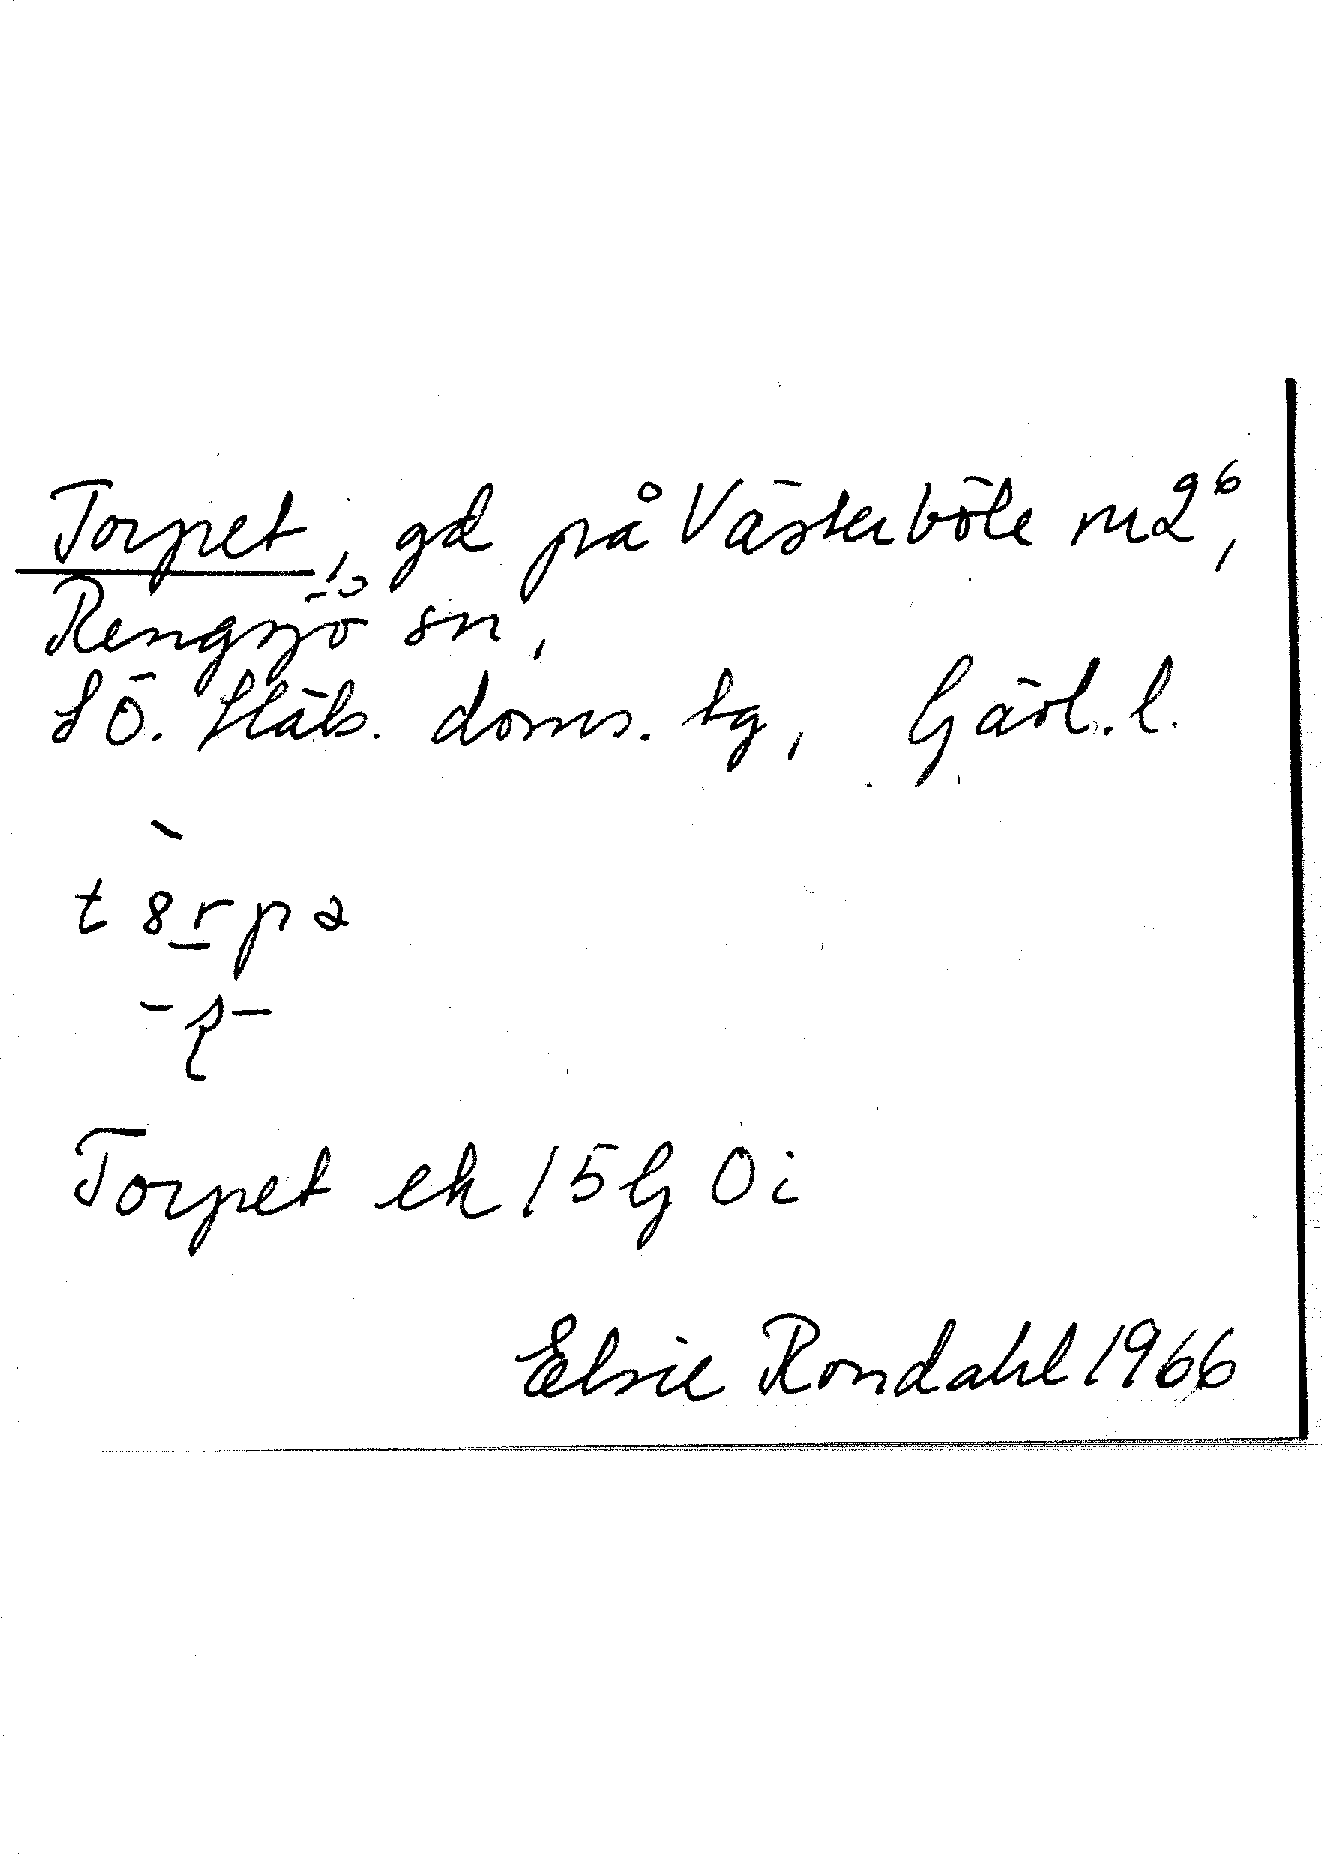 Torpet, gd på Västerböle m2⁹⁶,
Rengsjö sn,
Sö. Häls. doms. tg, Gävl. l.
t 8 r p a
Torpet ek 15G 0i
Elsie Rondahl 1966